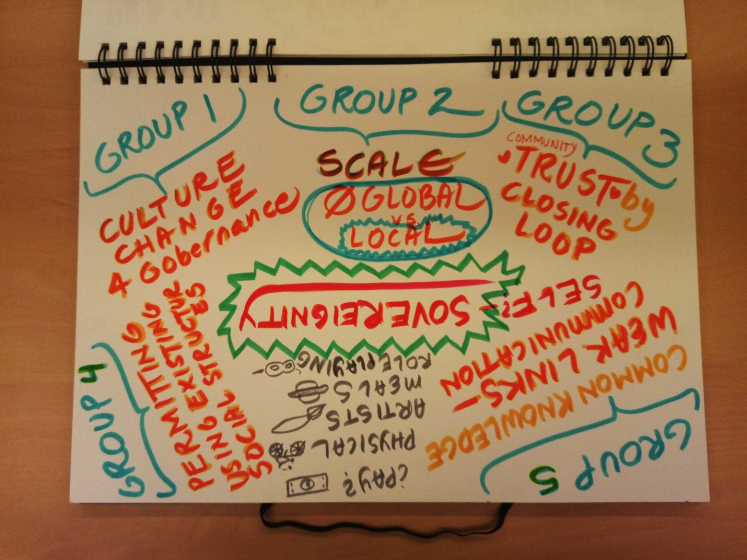 GROUP 1
CULTURE
CHANGE
4 Gobernance
GROUP 2
SCALE
Ø GLOBAL
VS.
LOCAL
GROUP 3
COMMUNITY
TRUST by
CLOSING
LOOP
GROUP 4
PERMITTING
USING EXISTING
SOCIAL STRUCTURES
GROUP 5
COMMON KNOWLEDGE
WEAK LINKS-
COMMUNICATION
SELF?-
SOVEREIGNITY
¿PAY?
PHYSICAL
ARTISTS
MEALS
ROLEPLAYING